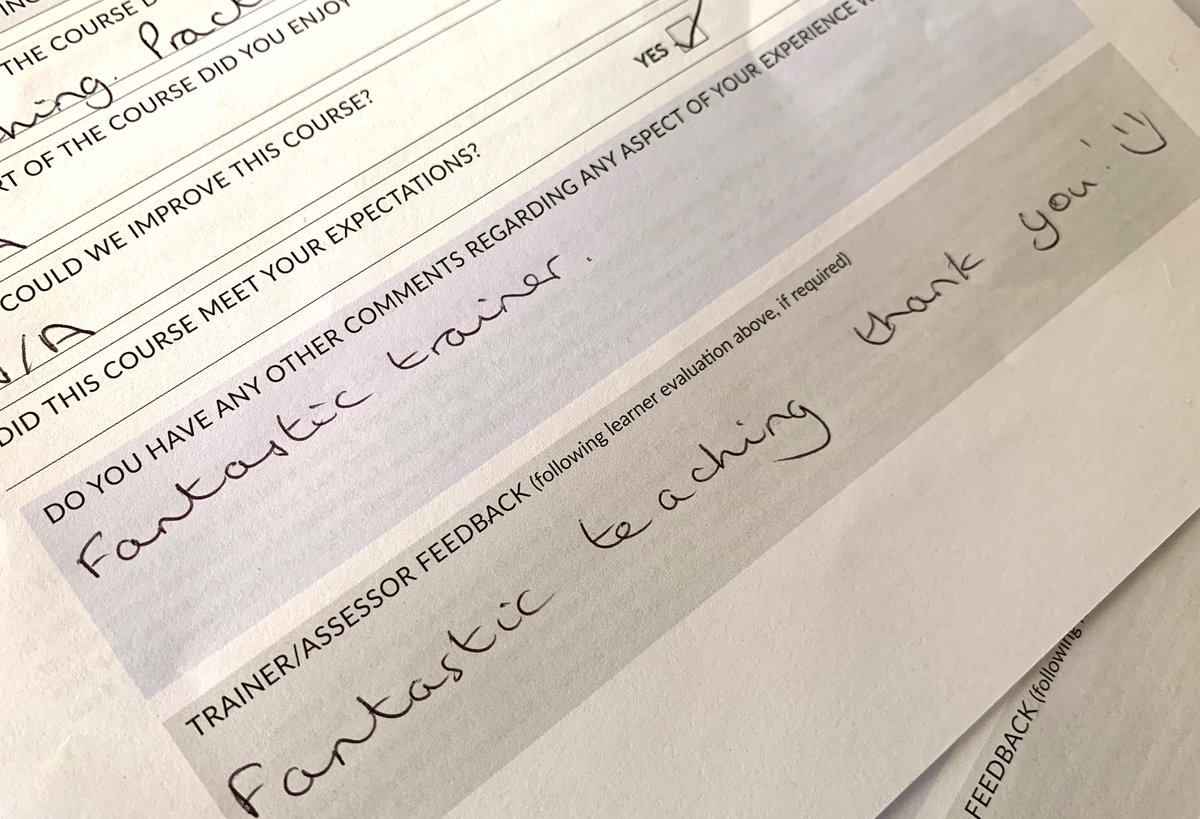 THE COURSE
hing. Prac
OF THE COURSE DID YOU ENJOY
COULD WE IMPROVE THIS COURSE?
N/A
DID THIS COURSE MEET YOUR EXPECTATIONS? YES
DO YOU HAVE ANY OTHER COMMENTS REGARDING ANY ASPECT OF YOUR EXPERIENCE
Fantastic trainer.
TRAINER/ASSESSOR FEEDBACK (following learner evaluation above, if required)
Fantastic teaching thank you! :)
FEEDBACK (following